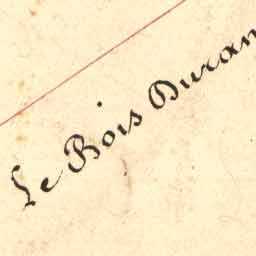 Le Bois Duran